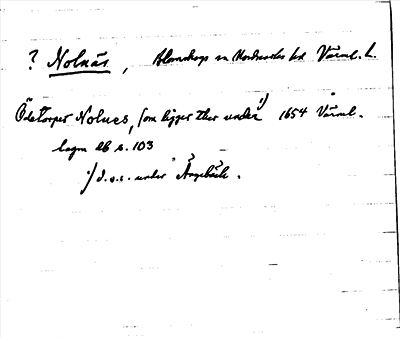 ? Nolnäs, Blomskogs sn Nordmarks hd Värml. l.
Ödetorpet Nolnes, som ligger ther under 1) 1654 Värml.
lagm db s. 103
1) d.v.s. under Ängebäck.